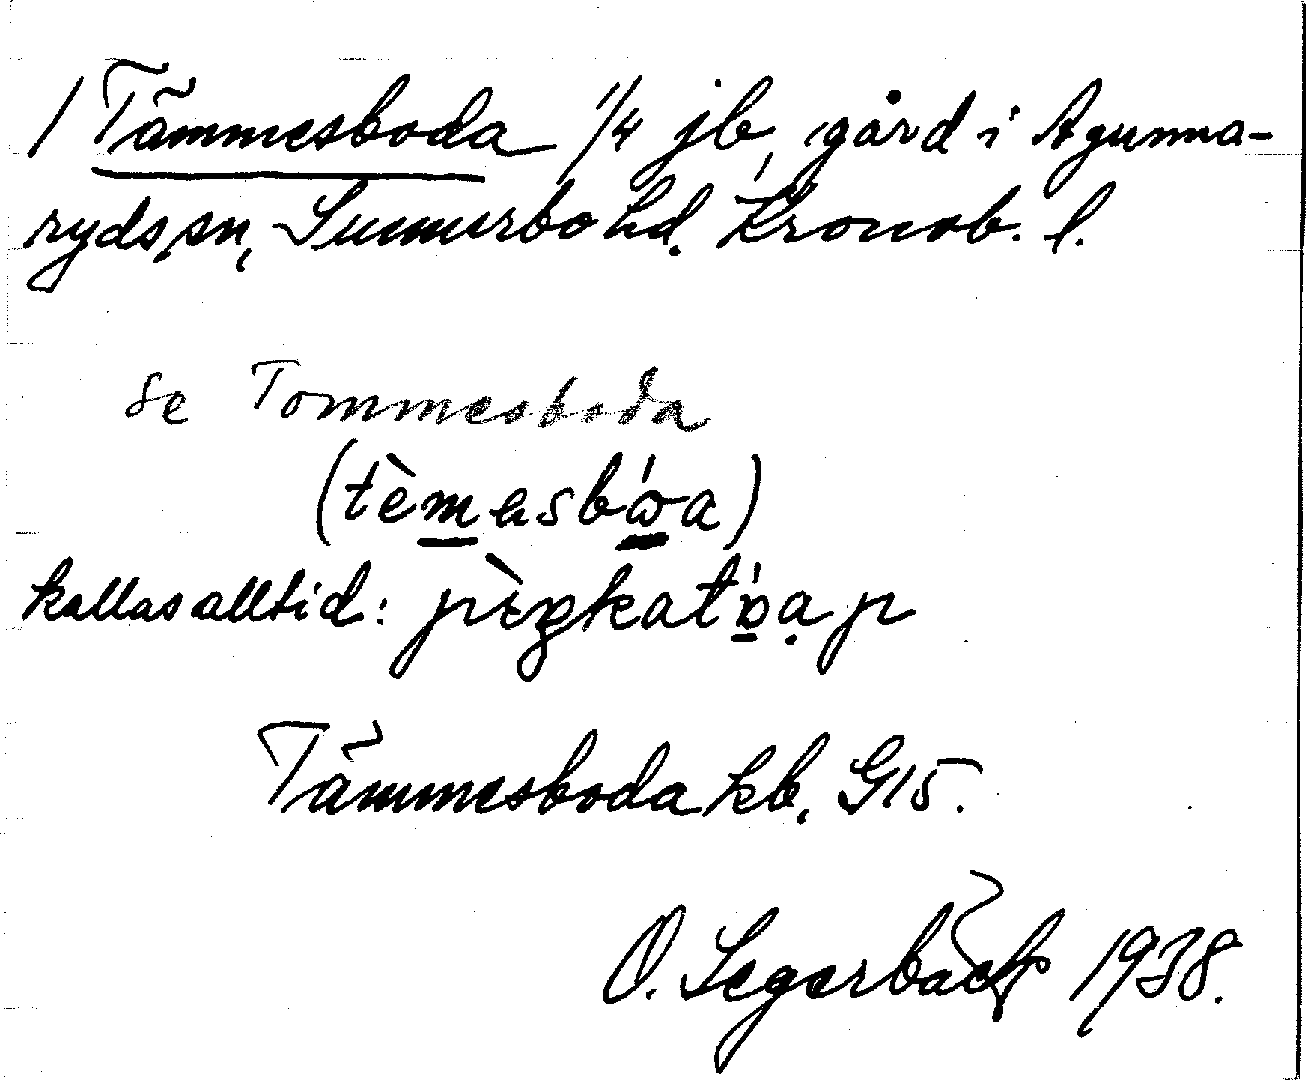 1 Tämmesboda 1/4 jb, gård i Agunna-
ryds sn, Sunnerbo hd. Kronob. l.
se Tommesboda
(tèmɐsbóa)
kallas alltid:
Tämmesboda kb. G15.
O. Segerbäck 1938.